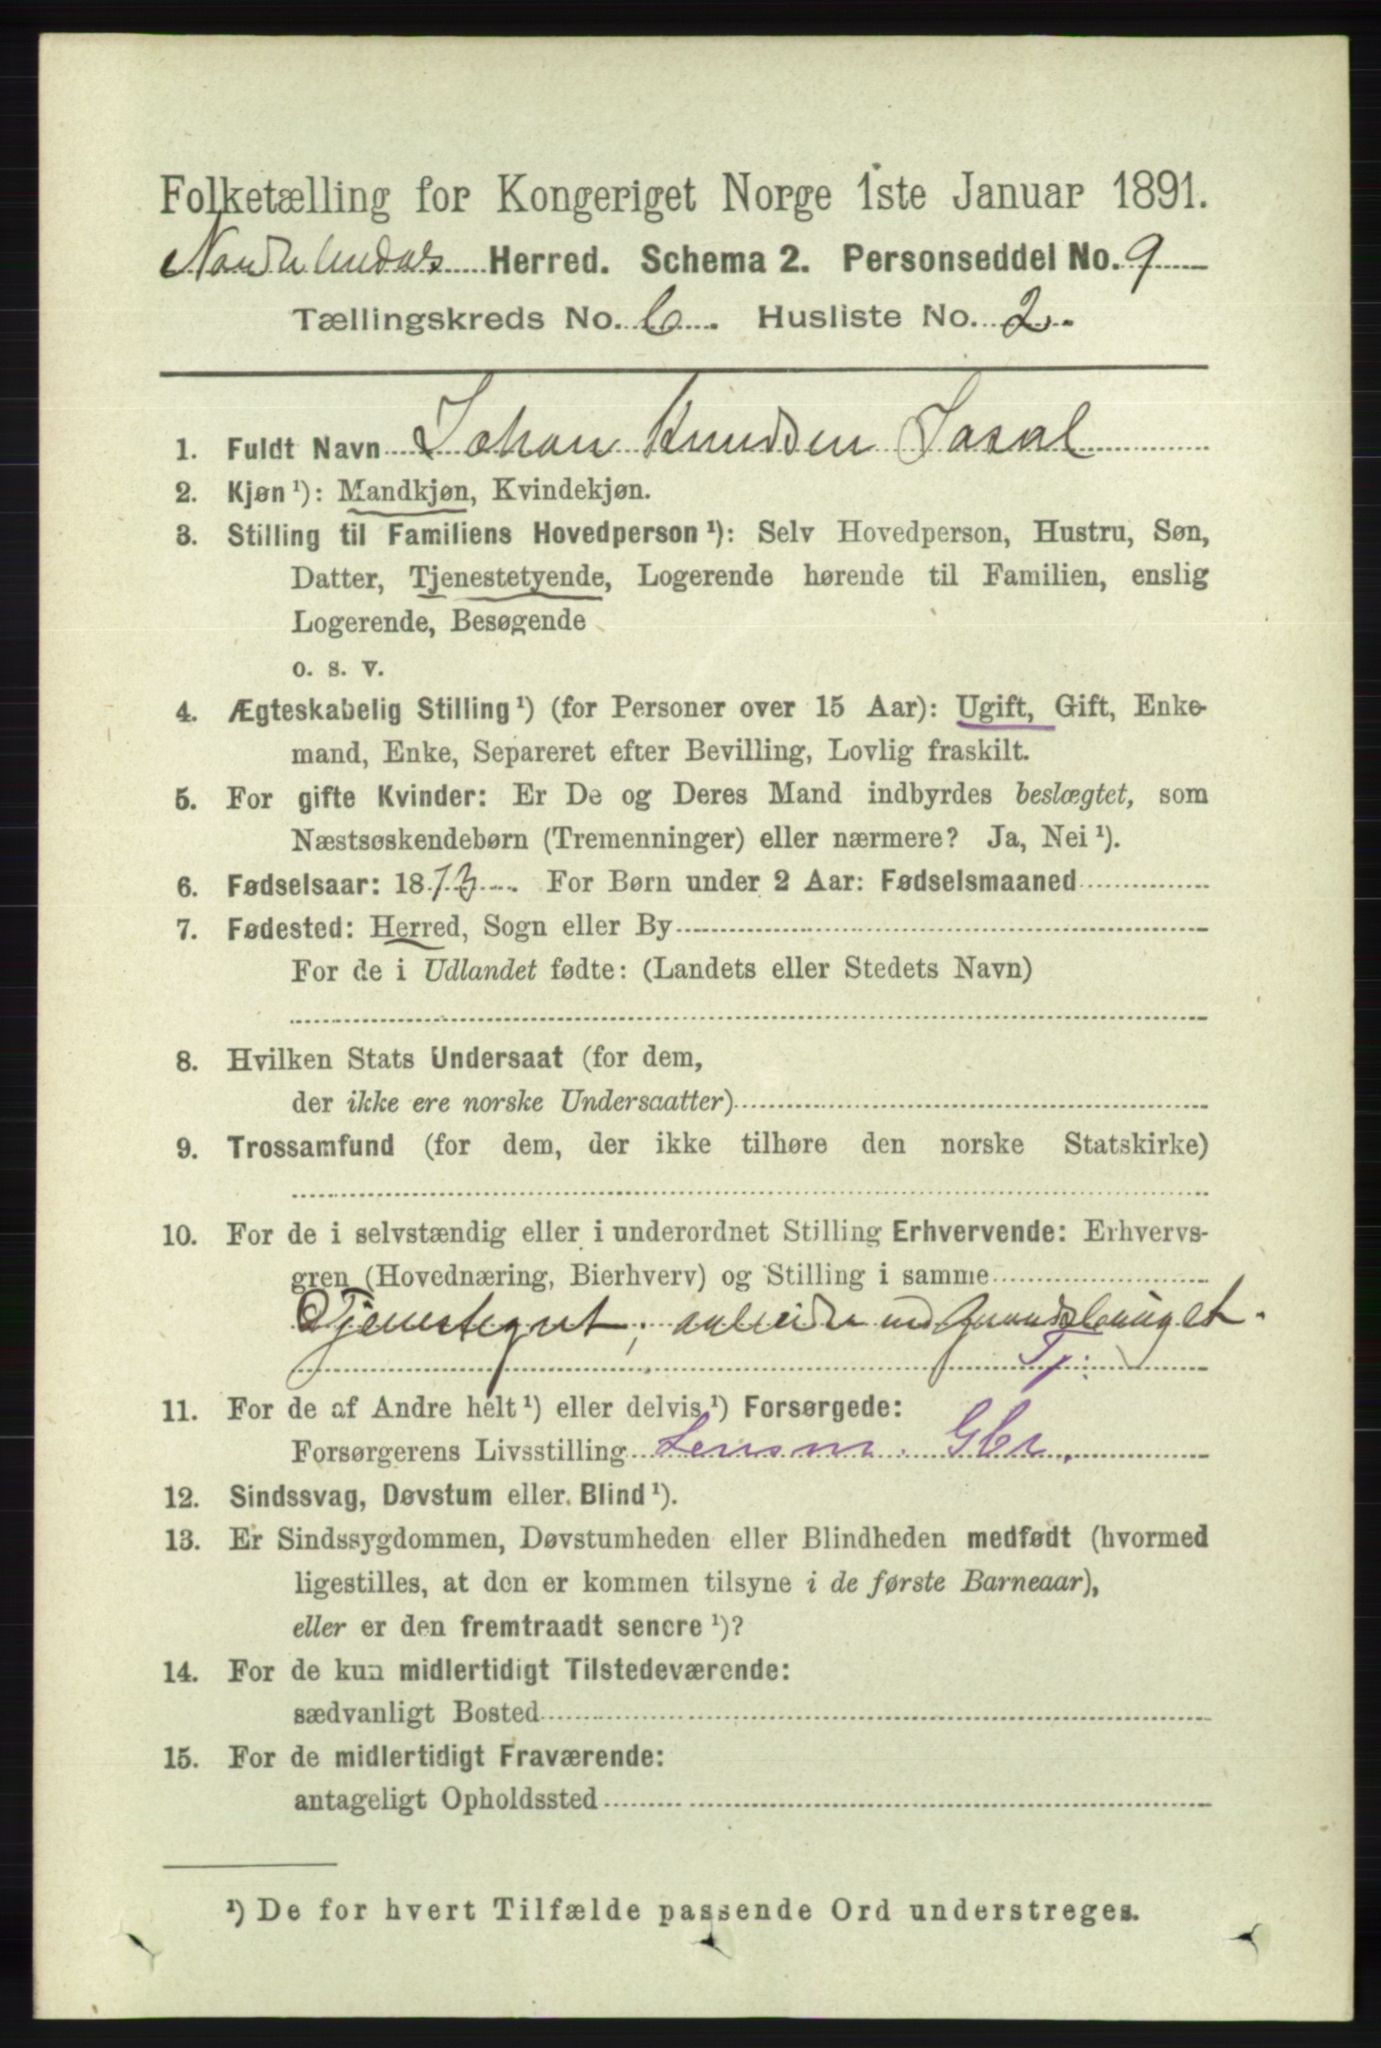 Folketælling for Kongeriget Norge 1ste Januar 1891.
Herred. Schema 2. Personseddel No. 9
Tællingskreds No. 6. Husliste No. 2.
1. Fuldt Navn Johan Knudsen Sasal
2. Kjøn ¹): Mandkjøn, Kvindekjøn.
3. Stilling til Familiens Hovedperson ¹): Selv Hovedperson, Hustru, Søn,
Datter, Tjenestetyende, Logerende hørende til Familien, enslig
Logerende, Besøgende
o. s. v.
4. Ægteskabelig Stilling ¹) (for Personer over 15 Aar): Ugift, Gift, Enke-
mand, Enke, Separeret efter Bevilling, Lovlig fraskilt.
5. For gifte Kvinder: Er De og Deres Mand indbyrdes beslægtet, som
Næstsøskendebørn (Tremenninger) eller nærmere? Ja, Nei ¹).
6. Fødselsaar: 1873. For Børn under 2 Aar: Fødselsmaaned
7. Fødested: Herred, Sogn eller By
For de i Udlandet fødte: (Landets eller Stedets Navn)
8. Hvilken Stats Undersaat (for dem,
der ikke ere norske Undersaatter)
9. Trossamfund (for dem, der ikke tilhøre den norske Statskirke)
10. For de i selvstændig eller i underordnet Stilling Erhvervende: Erhvervs-
gren (Hovednæring, Bierhverv) og Stilling i samme
Tjenestegut, arbeider ved Gaardsbruget.
Tj.
11. For de af Andre helt ¹) eller delvis ¹) Forsørgede:
Forsørgerens Livsstilling Lensm. Gbr.
12. Sindssvag, Døvstum eller Blind ¹).
13. Er Sindssygdommen, Døvstumheden eller Blindheden medfødt (hvormed
ligestilles, at den er kommen tilsyne i de første Barneaar),
eller er den fremtraadt senere ¹)?
14. For de kun midlertidigt Tilstedeværende:
sædvanligt Bosted
15. For de midlertidigt Fraværende:
antageligt Opholdssted
¹) De for hvert Tilfælde passende Ord understreges.